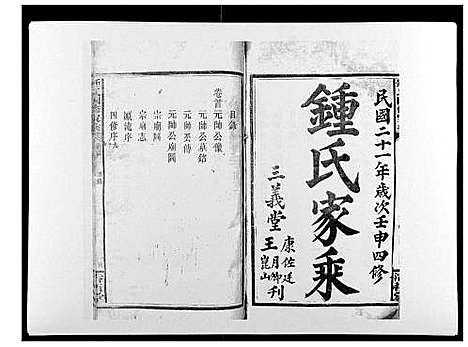 民國二十一年歲次壬申四修
鍾氏家乘
三義堂
康佐廷
王月卿
崑山
刊
目錄
卷首
元帥公像
元帥公墓銘
元帥公傳
元帥公廟圖
宗廟圖
宗廟志
源流序
四修序